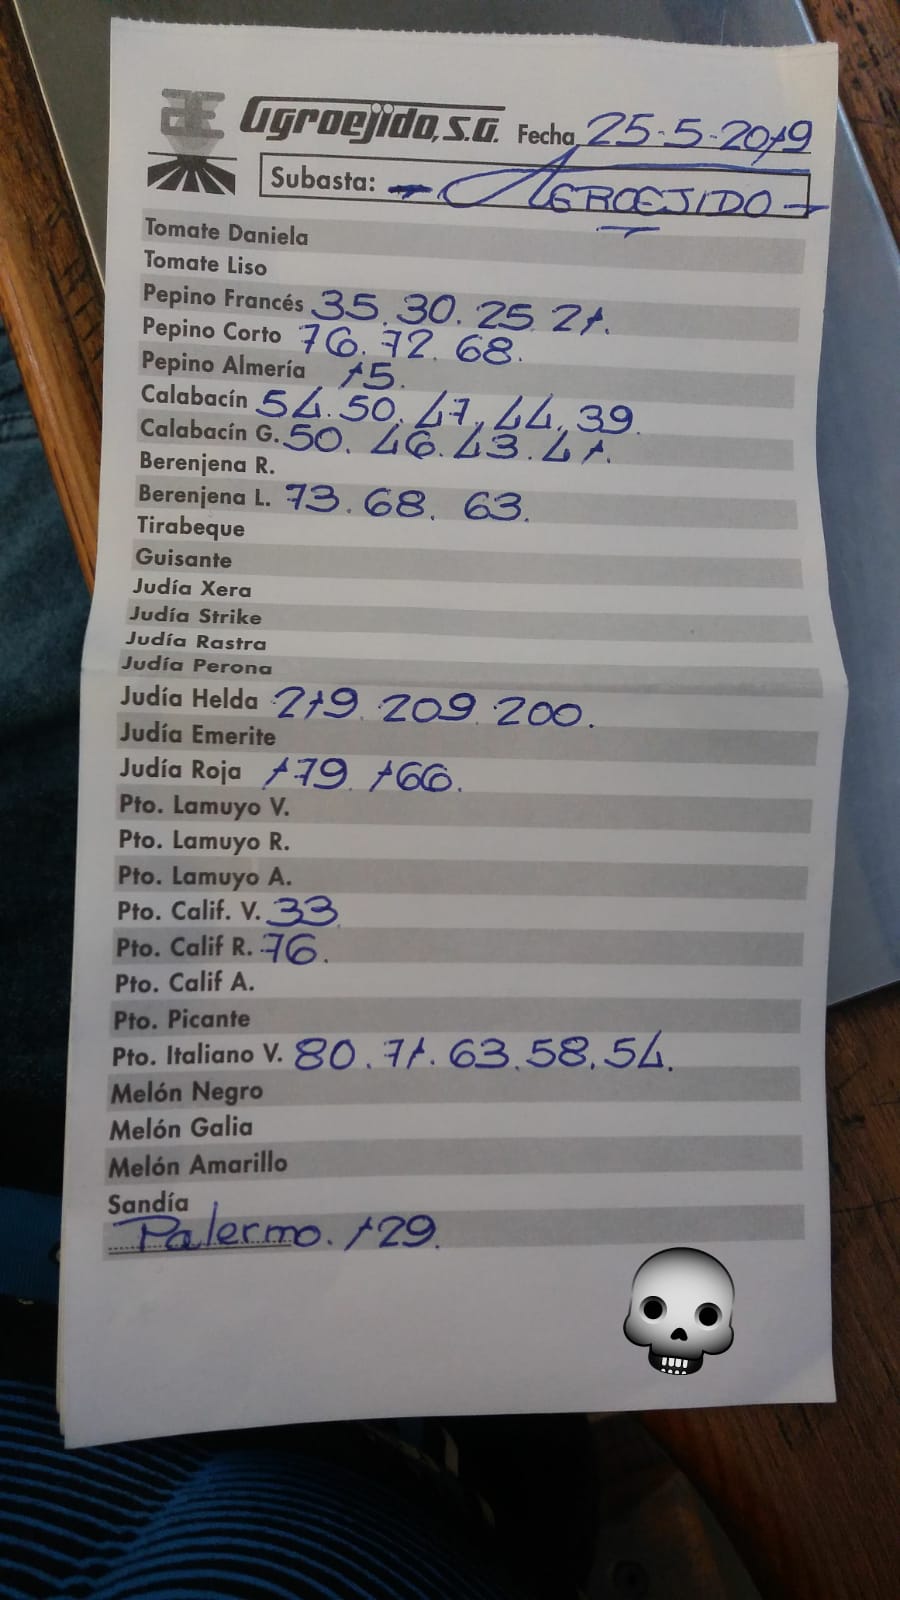 Agroejido, S.A. Fecha 25-5-2019
Subasta: - AGROEJIDO -
Tomate Daniela
Tomate Liso
Pepino Francés 35. 30. 25. 21.
Pepino Corto 76. 72. 68.
Pepino Almería 15.
Calabacín 54. 50. 47. 44. 39.
Calabacín G. 50. 46. 43. 41.
Berenjena R.
Berenjena L. 73. 68. 63.
Tirabeque
Guisante
Judía Xera
Judía Strike
Judía Rastra
Judía Perona
Judía Helda 219. 209. 200.
Judía Emerite
Judía Roja 179. 166.
Pto. Lamuyo V.
Pto. Lamuyo R.
Pto. Lamuyo A.
Pto. Calif. V. 33.
Pto. Calif R. 76.
Pto. Calif A.
Pto. Picante
Pto. Italiano V. 80. 71. 63. 58. 54.
Melón Negro
Melón Galia
Melón Amarillo
Sandía
Palermo. 129.